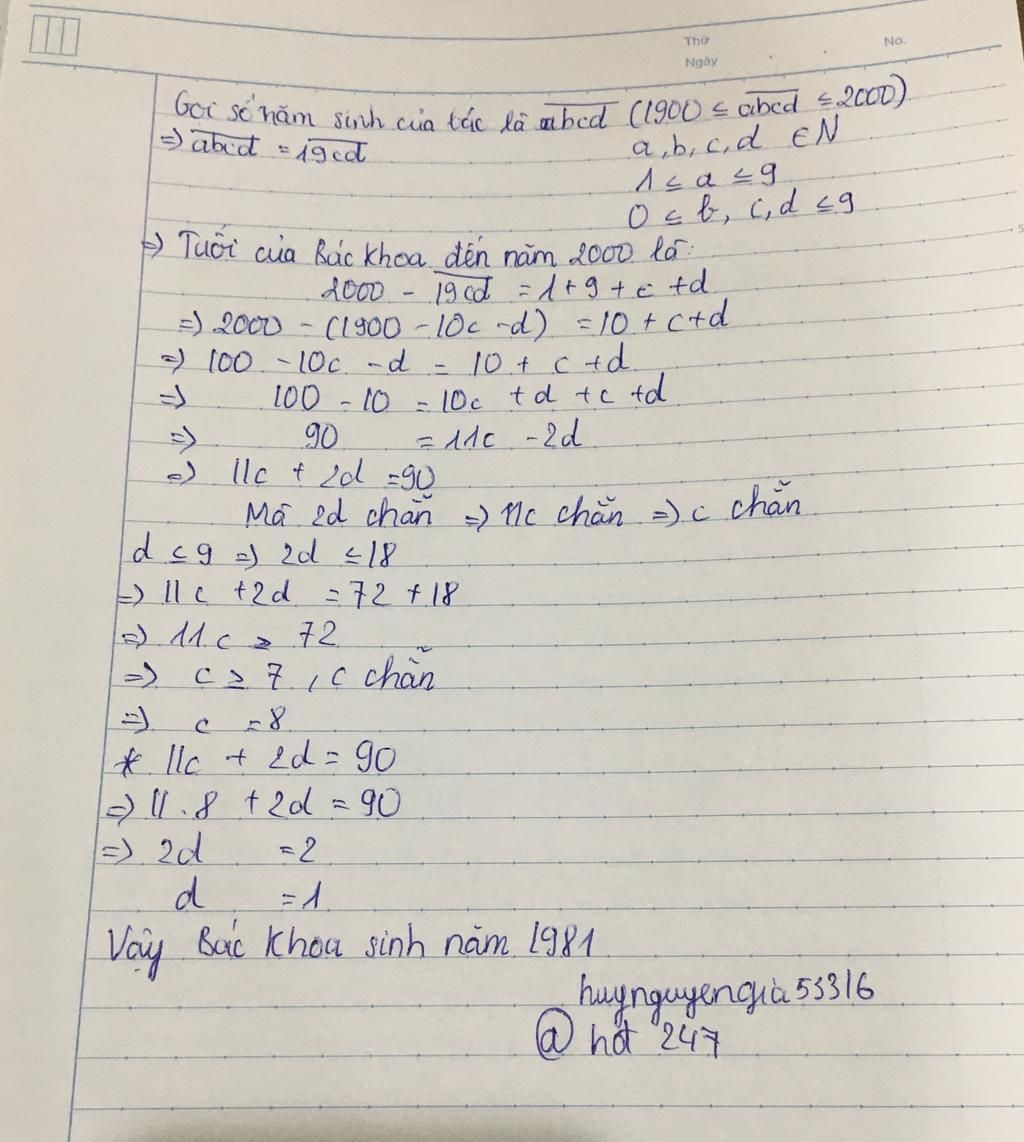 Thứ
Ngày
No.
Gọi số năm sinh của bác là abcd (1900 ≤ abcd ≤ 2000)
=> abcd = 19cd
a, b, c, d ∈ N
1 ≤ a ≤ 9
0 ≤ b, c, d ≤ 9
=> Tuổi của Bác Khoa đến năm 2000 là:
2000 - 19cd = 1 + 9 + c + d
=> 2000 - (1900 - 10c - d) = 10 + c + d
=> 100 - 10c - d = 10 + c + d
=> 100 - 10 = 10c + d + c + d
=> 90 = 11c - 2d
=> 11c + 2d = 90
Mà 2d chẵn => 11c chẵn => c chẵn
d ≤ 9 => 2d ≤ 18
=> 11c + 2d = 72 + 18
=> 11c ≥ 72
=> c ≥ 7, c chẵn
=> c = 8
* 11c + 2d = 90
=> 11.8 + 2d = 90
=> 2d = 2
d = 1
Vậy Bác Khoa sinh năm 1981
huynguyengia53316
@ hot 247